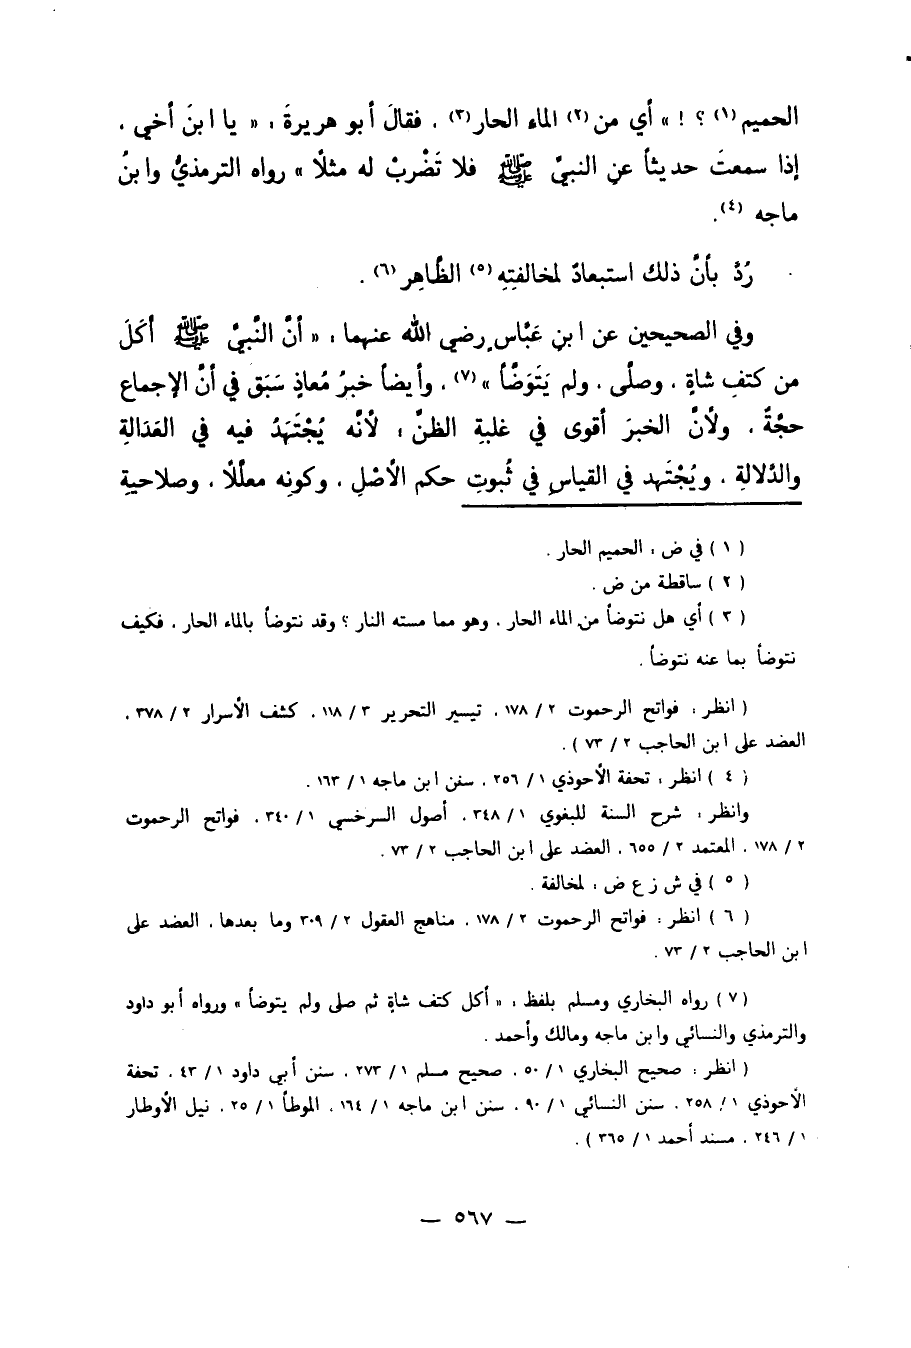 الحميم(١) ؟ ! » أي من (٢) الماء الحار(٣) . فقالَ أبو هريرةَ : « يا ابنَ أخي ،
إذا سمعتَ حديثاً عنِ النبيِّ ﷺ فلا تَضْربْ له مثلًا » رواه الترمذيُّ وابنُ
ماجه (٤).
رُدَّ بأنَّ ذلك استبعادٌ لمخالفتِهِ (٥) الظَّاهِر (٦) .
وفي الصحيحين عن ابنِ عَبَّاسٍ رضي الله عنهما : « أنَّ النَّبيَّ ﷺ أكَلَ
من كتفِ شاةٍ ، وصلَّى ، ولم يَتَوَضَّأ » (٧) ، وأيضاً خبرُ مُعاذٍ سَبَق في أنَّ الإجماع
حجَّةٌ ، ولأنَّ الخبرَ أقوى في غلبةِ الظنِّ ؛ لأنَّه يُجْتَهَدُ فيه في العَدَالةِ
والدَّلالةِ ، ويُجْتَهد في القياسِ في ثُبوتِ حكم الأصْلِ ، وكونِه معلَّلًا ، وصلاحيةِ
( ١ ) في ض : الحميم الحار .
( ٢ ) ساقطة من ض .
( ٣ ) أي هل نتوضأ من الماء الحار ، وهو مما مسته النار ؟ وقد نتوضأ بالماء الحار ، فكيف
نتوضأ بما عنه نتوضأ .
( انظر : فواتح الرحموت ٢ / ١٧٨ ، تيسير التحرير ٣ / ١١٨ ، كشف الأسرار ٢ / ٣٧٨ ،
العضد على ابن الحاجب ٢ / ٧٣ ) .
( ٤ ) انظر : تحفة الأحوذي ١ / ٢٥٦ ، سنن ابن ماجه ١ / ١٦٣ .
وانظر : شرح السنة للبغوي ١ / ٣٤٨ ، أصول السرخسي ١ / ٣٤٠ ، فواتح الرحموت
٢ / ١٧٨ ، المعتمد ٢ / ٦٥٥ ، العضد على ابن الحاجب ٢ / ٧٣ .
( ٥ ) في ش ز ع ض : لمخالفة .
( ٦ ) انظر : فواتح الرحموت ٢ / ١٧٨ ، مناهج العقول ٢ / ٣٠٩ وما بعدها ، العضد على
ابن الحاجب ٢ / ٧٣ .
( ٧ ) رواه البخاري ومسلم بلفظ : « أكل كتف شاةٍ ثم صلى ولم يتوضأ » ورواه أبو داود
والترمذي والنسائي وابن ماجه ومالك وأحمد .
( انظر : صحيح البخاري ١ / ٥٠ ، صحيح مسلم ١ / ٢٧٣ ، سنن أبي داود ١ / ٤٣ ، تحفة
الأحوذي ١ / ٢٥٨ ، سنن النسائي ١ / ٩٠ ، سنن ابن ماجه ١ / ١٦٤ ، الموطأ ١ / ٢٥ ، نيل الأوطار
١ / ٢٤٦ ، مسند أحمد ١ / ٣٦٥ ) .
— ٥٦٧ —